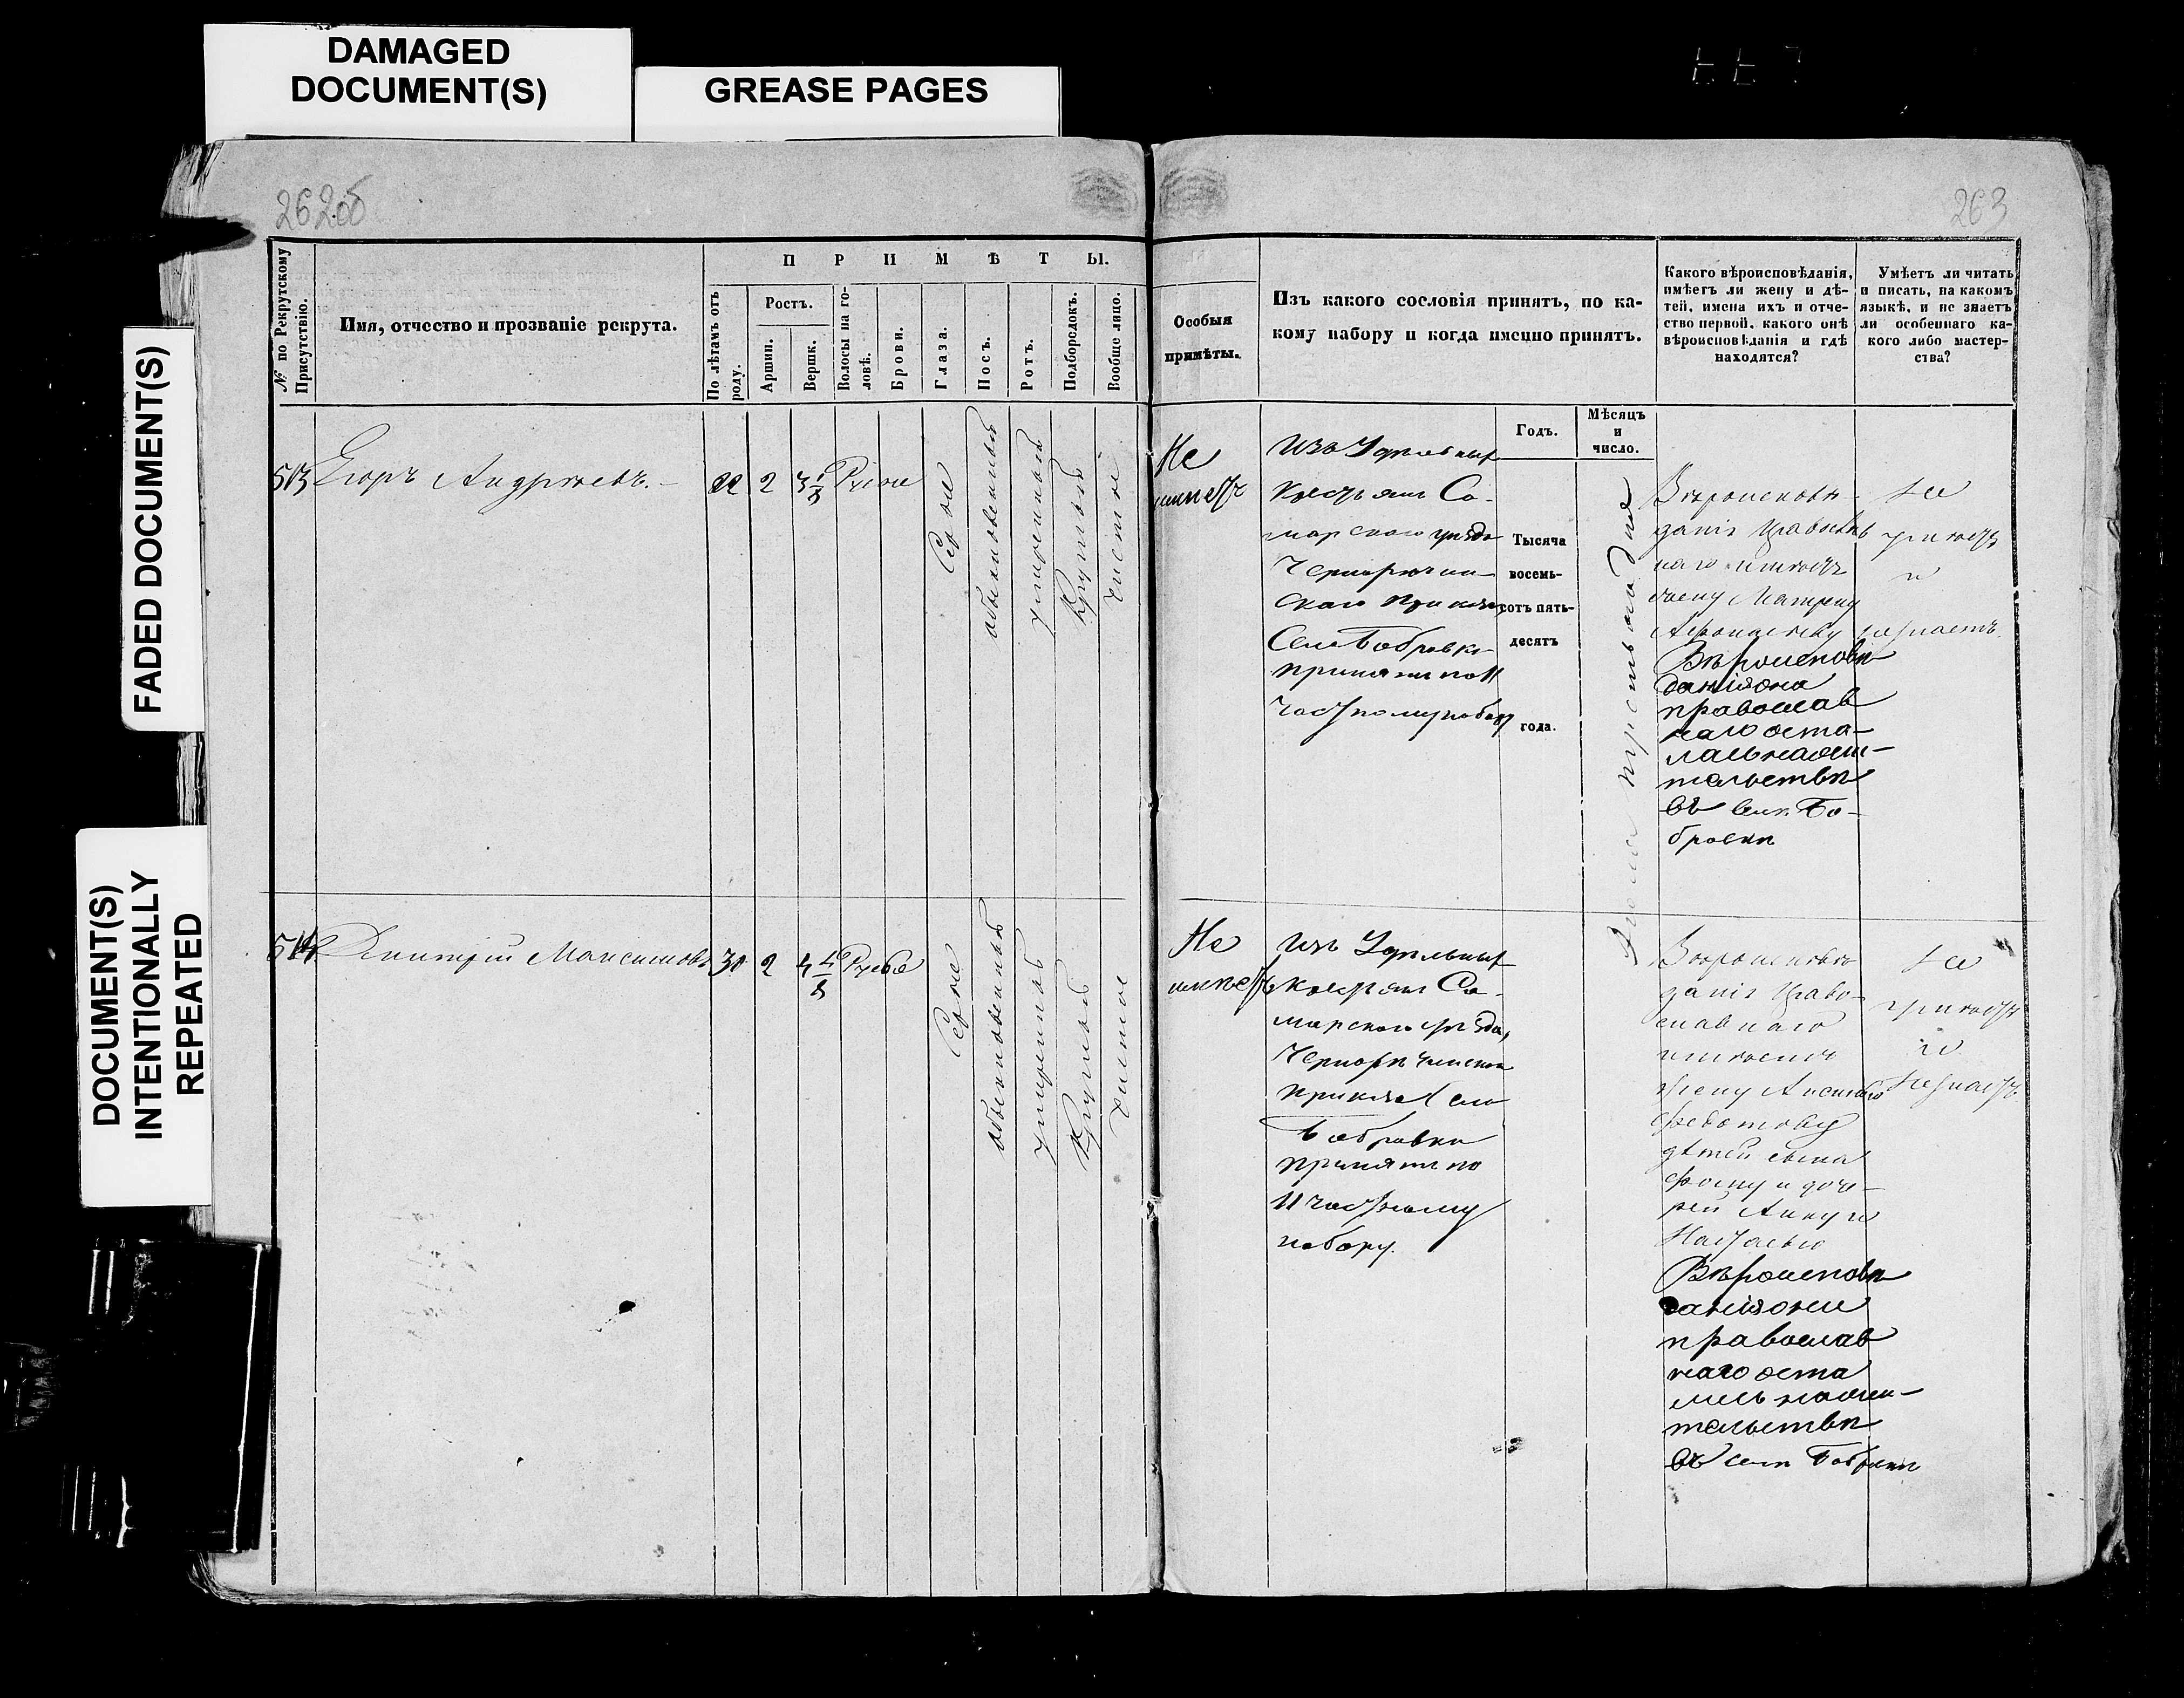 DAMAGED
DOCUMENT(S)
GREASE PAGES
FADED DOCUMENT(S)
DOCUMENT(S)
INTENTIONALLY
REPEATED
262об
263
№ по Рекрутскому
Присутствію.
Имя, отчество и прозваніе рекрута.
П Р И М Ѣ Т Ы.
По лѣтамъ отъ
роду.
Ростъ.
Аршин.
Вершк.
Волосы на го-
ловѣ.
Брови.
Глаза.
Носъ.
Ротъ.
Подбородокъ.
Вообще лицо.
Особыя
примѣты.
Изъ какого сословія принятъ, по ка-
кому набору и когда именно принятъ.
Годъ.
Мѣсяцъ
и
число.
Какого вѣроисповѣданія,
имѣетъ ли жену и дѣ-
тей, имена ихъ и отче-
ство первой, какого онѣ
вѣроисповѣданія и гдѣ
находятся?
Умѣетъ ли читать
и писать, на какомъ
языкѣ, и не знаетъ
ли особеннаго ка-
кого либо мастер-
ства?
513 Егоръ Андреевъ.
22 2 3 1/8 Русые
Серые
обыкновенный
умеренный
Круглый
чистое
Не
имеетъ
Изъ Удельныхъ
Крестьянъ Са-
марского уезда
Черноречен-
скаго Приказа
Села Бобровки
принятъ по 11
частному набору
Тысяча
восемь-
сотъ пять-
десятъ
года.
Вѣроисповѣ-
данія Православ
наго имѣетъ
жену Матрену
Вѣроисповѣ
данія она
православ
наго оста-
лась на жи-
тельствѣ
въ селѣ Бо-
бровкѣ
не
умѣетъ
и
незнаетъ
514 Дмитрій Максимовъ
30 2 4 4/8 Русые
Серые
обыкновенный
умеренный
Круглый
чистое
Не
имеетъ
Изъ Удельныхъ
Крестьянъ Са-
марского уезда,
Чернореченскаго
Приказа Села
Бобровки
принятъ по
11 частному
набору.
Вѣроисповѣ
данія Право-
славнаго
имѣетъ
жену
Федотову
дѣтей сына
Фому и доче-
рей Анну и
Настасью
Вѣроисповѣ
данія они
православ
наго оста
лись на жи-
тельствѣ
въ селѣ Бобровкѣ
не
умѣетъ
и
незнаетъ